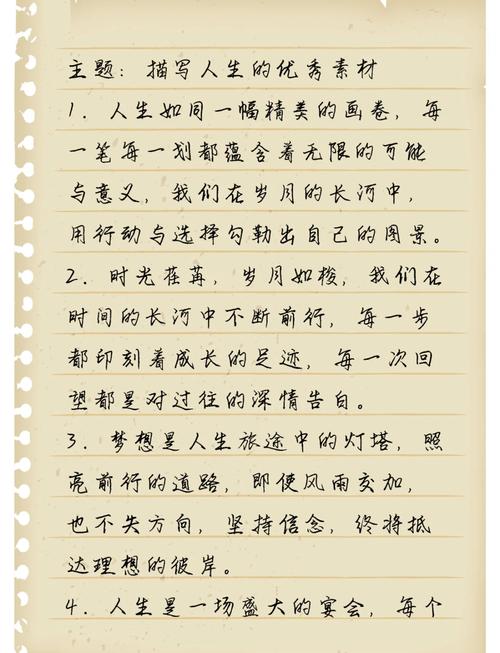 主题：描写人生的优秀素材
1. 人生如同一幅精美的画卷，每
一笔每一划都蕴含着无限的可能
与意义，我们在岁月的长河中，
用行动与选择勾勒出自己的图景。
2. 时光荏苒，岁月如梭，我们在
时间的长河中不断前行，每一步
都印刻着成长的足迹，每一次回
望都是对过往的深情告白。
3. 梦想是人生旅途中的灯塔，照
亮前行的道路，即使风雨交加，
也不失方向，坚持信念，终将抵
达理想的彼岸。
4. 人生是一场盛大的宴会，每个